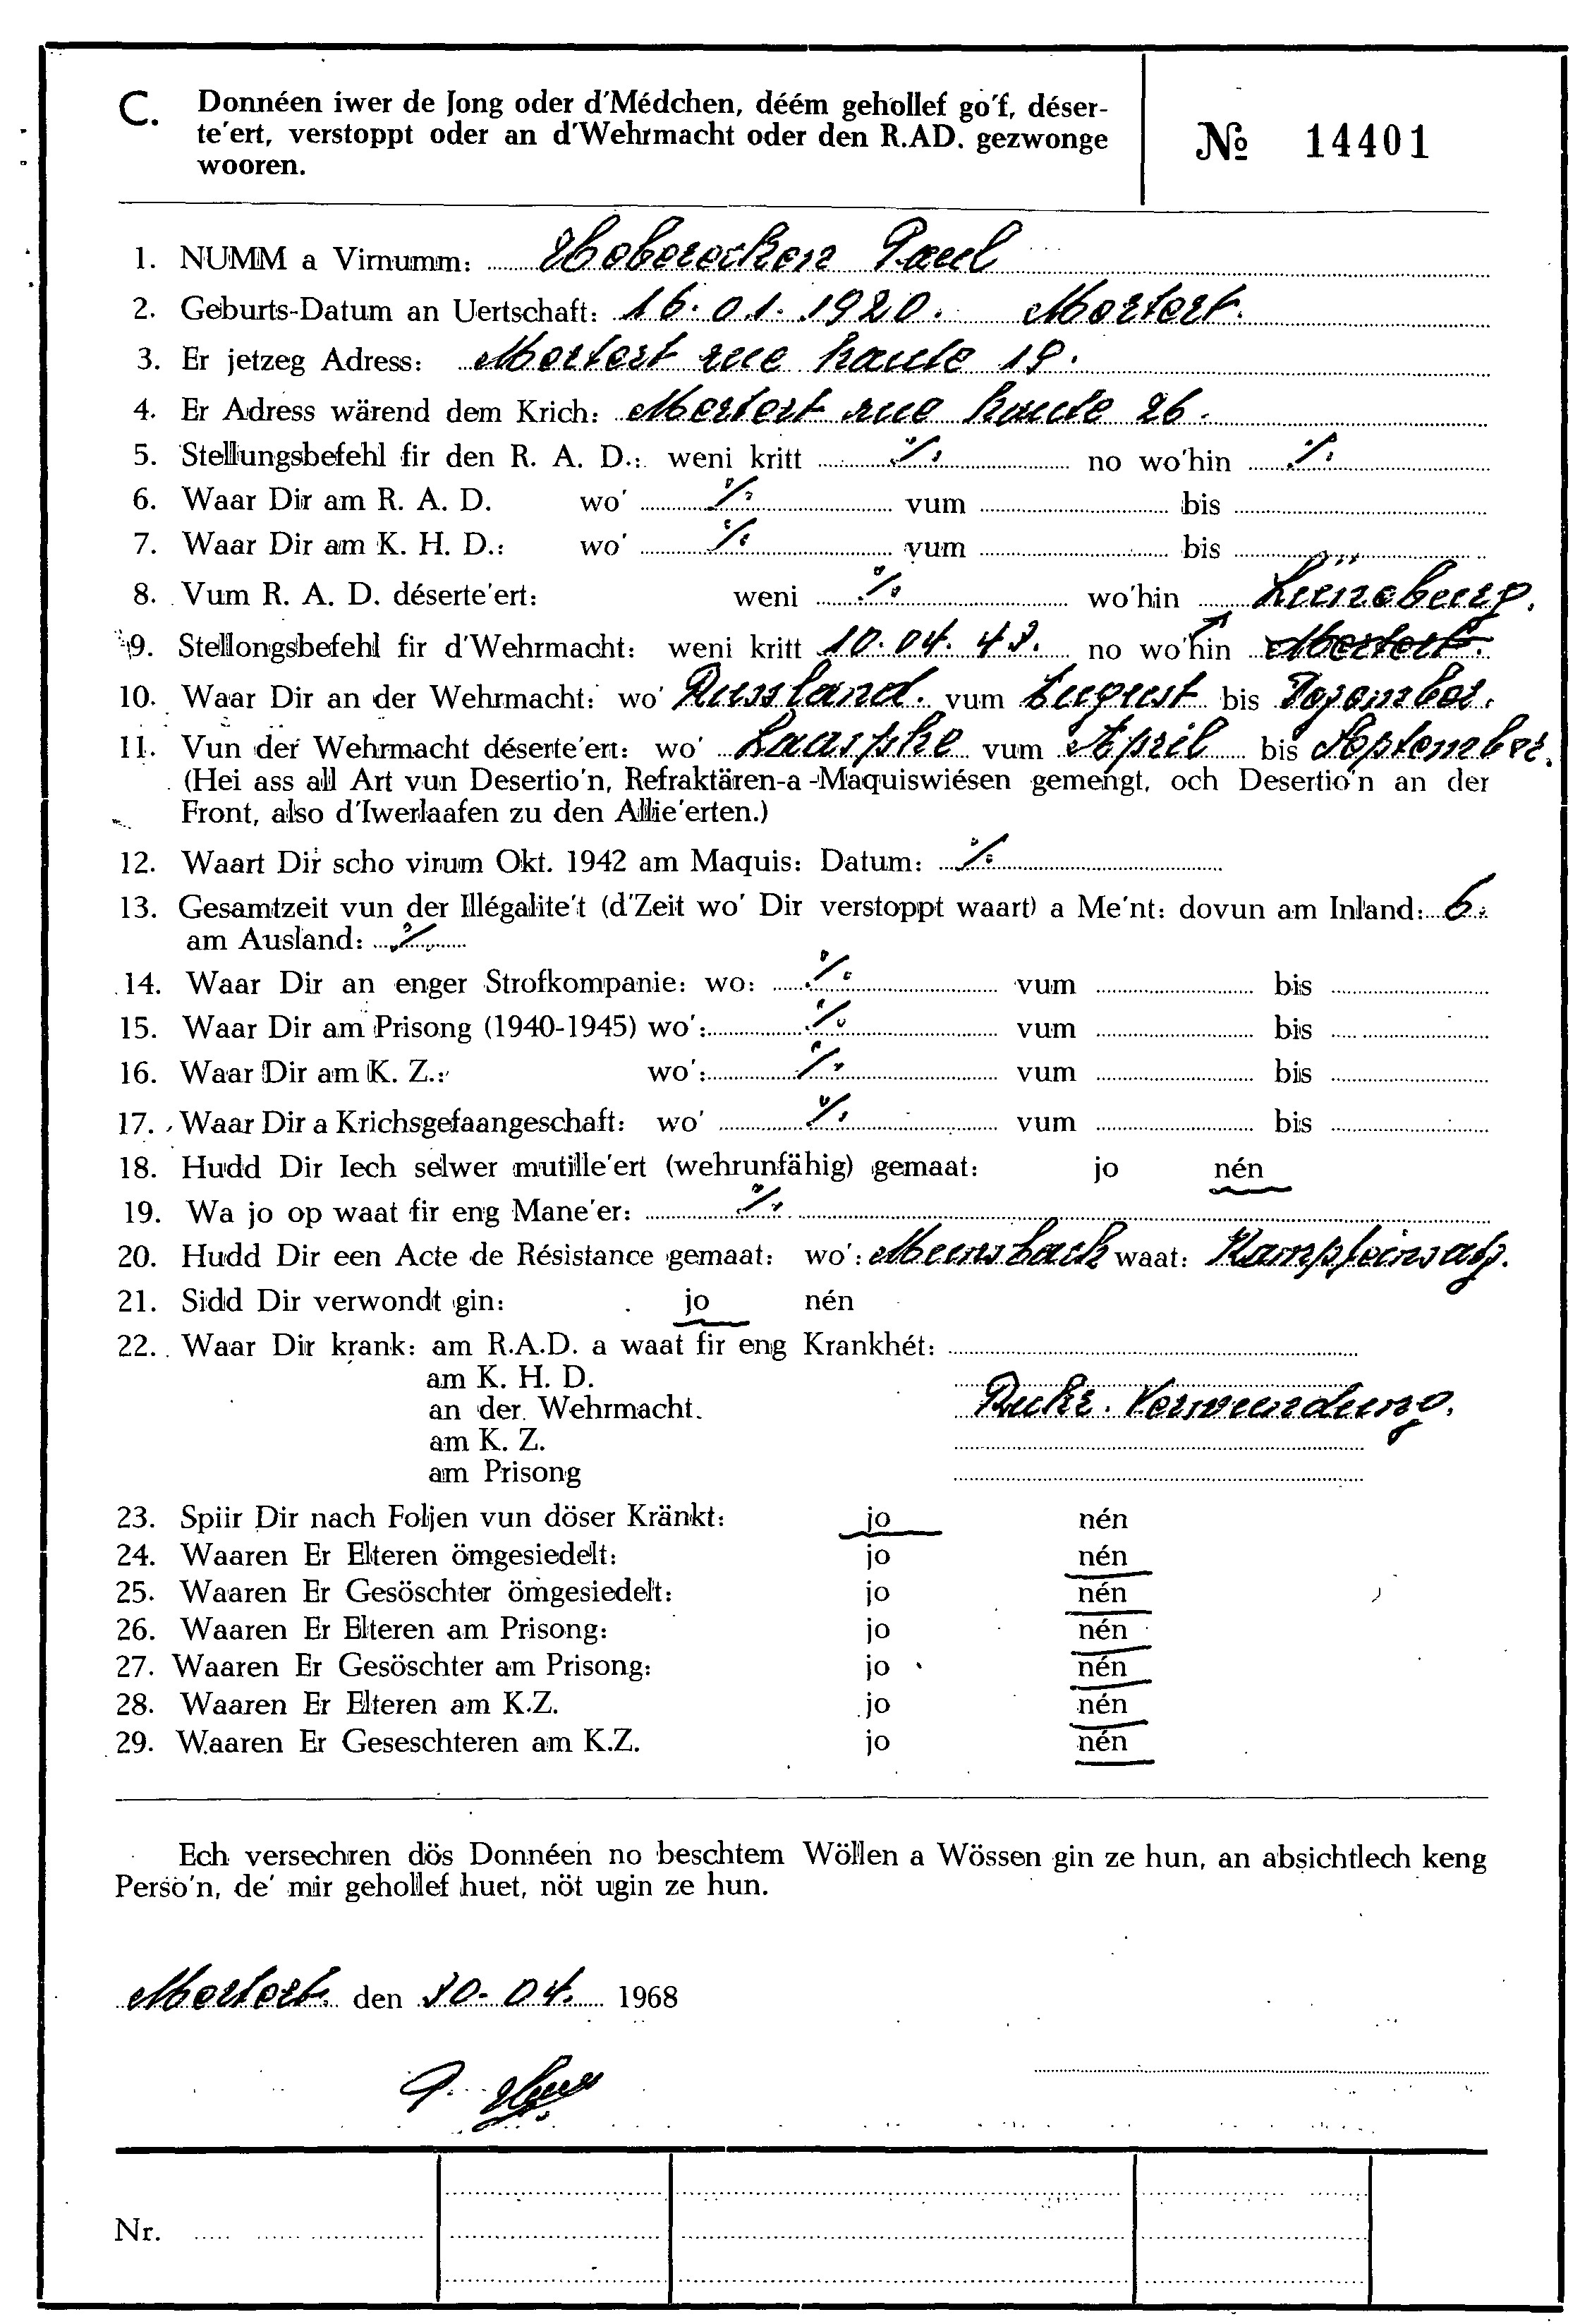 C. Donnéen iwer de Jong oder d'Médchen, déém gehollef go'f, déser-
te'ert, verstoppt oder an d'Wehrmacht oder den R.AD. gezwonge
wooren.
№ 14401
1. NUMM a Virnumm: Hoberecken Paul
2. Geburts-Datum an Uertschaft: 16.01.1920. Mertert.
3. Er jetzeg Adress: Mertert rue haute 19.
4. Er Adress wärend dem Krich: Mertert rue haute 26.
5. Stellungsbefehl fir den R. A. D.: weni kritt ./. no wo'hin ./.
6. Waar Dir am R. A. D. wo' ./. vum bis
7. Waar Dir am K. H. D.: wo' ./. vum bis
8. Vum R. A. D. déserte'ert: weni ./. wo'hin Lüneburg.
9. Stellongsbefehl fir d'Wehrmacht: weni kritt 10.04.43. no wo'hin Mertert.
10. Waar Dir an der Wehrmacht: wo' Russland. vum August bis Dezember.
11. Vun der Wehrmacht déserte'ert: wo' Laasphe vum April bis September.
(Hei ass all Art vun Desertio'n, Refraktären-a -Maquiswiésen gemengt, och Desertio'n an der
Front, also d'Iwerlaafen zu den Allie'erten.)
12. Waart Dir scho virum Okt. 1942 am Maquis: Datum: ./.
13. Gesamtzeit vun der Illégalite't (d'Zeit wo' Dir verstoppt waart) a Me'nt: dovun am Inland: 6.
am Ausland: ./.
14. Waar Dir an enger Strofkompanie: wo: ./. vum bis
15. Waar Dir am Prisong (1940-1945) wo': ./. vum bis
16. Waar Dir am K. Z.: wo': ./. vum bis
17. Waar Dir a Krichsgefaangeschaft: wo' ./. vum bis
18. Hudd Dir Iech selwer mutille'ert (wehrunfähig) gemaat: jo nén
19. Wa jo op waat fir eng Mane'er: ./.
20. Hudd Dir een Acte de Résistance gemaat: wo': Munsbach waat: Kampfeinsatz.
21. Sidd Dir verwondt gin: jo nén
22. Waar Dir krank: am R.A.D. a waat fir eng Krankhét:
am K. H. D.
an der Wehrmacht. Ruhr. Verwundung.
am K. Z.
am Prisong
23. Spiir Dir nach Foljen vun döser Kränkt: jo nén
24. Waaren Er Elteren ömgesiedelt: jo nén
25. Waaren Er Gesöschter ömgesiedelt: jo nén
26. Waaren Er Elteren am Prisong: jo nén
27. Waaren Er Gesöschter am Prisong: jo nén
28. Waaren Er Elteren am K.Z. jo nén
29. Waaren Er Geseschteren am K.Z. jo nén
Ech versechren dös Donnéen no beschtem Wöllen a Wössen gin ze hun, an absichtlech keng
Perso'n, de' mir gehollef huet, nöt ugin ze hun.
Mertert. den 30.04. 1968
Nr.